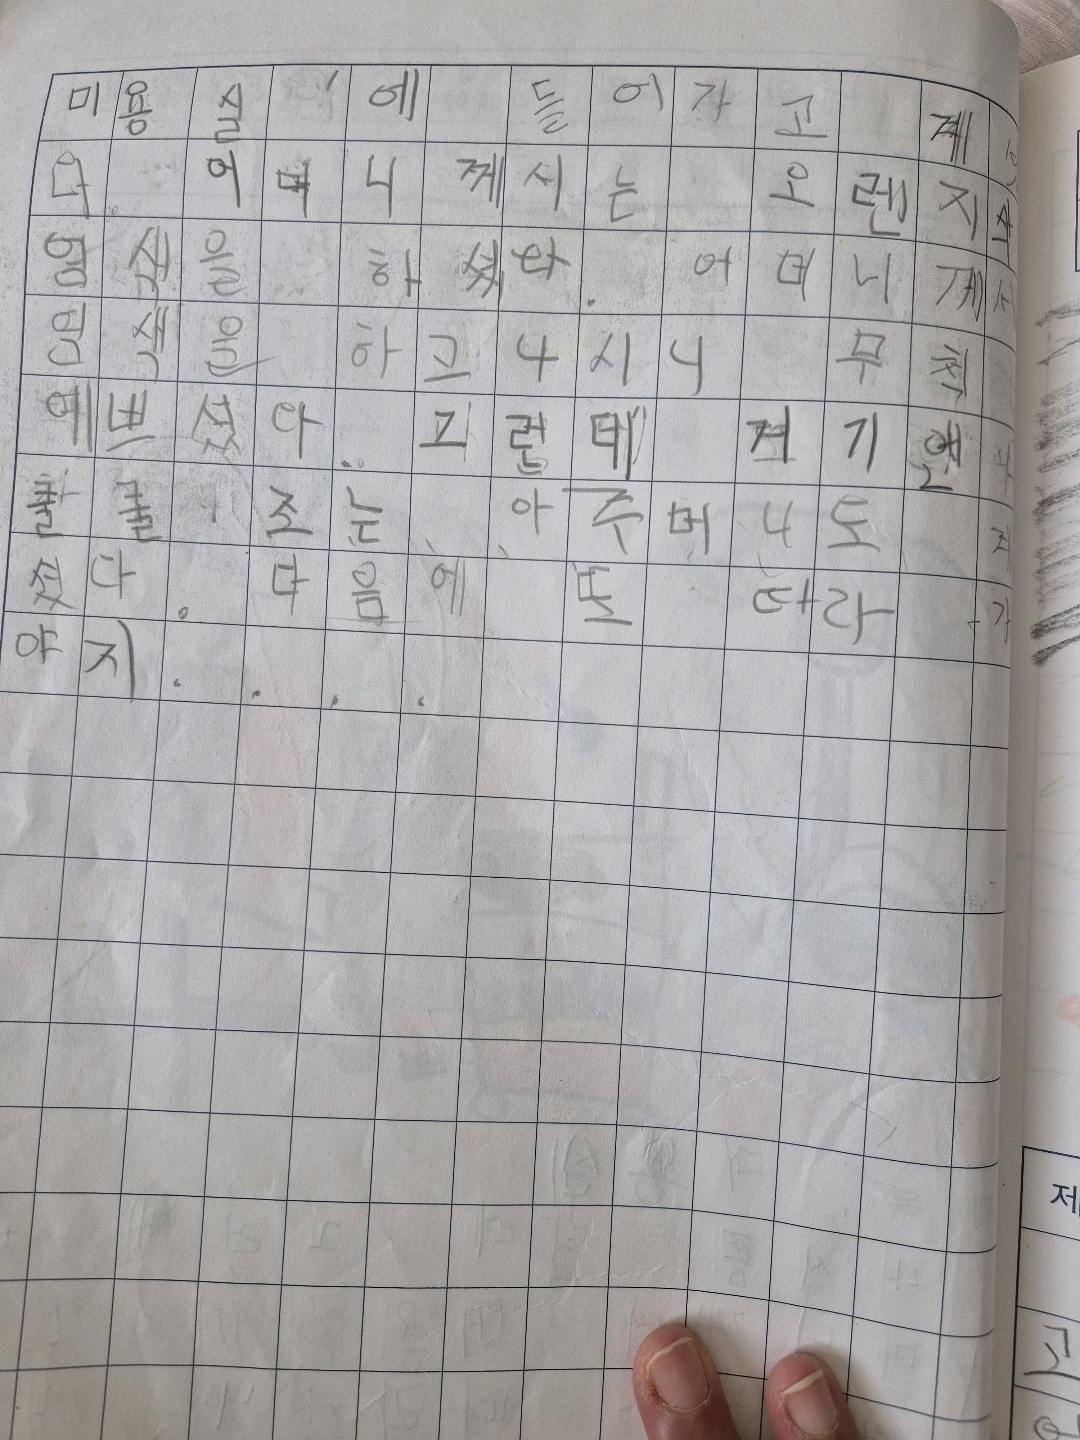 미용실에 들어가고 계
다. 어머니께서는 오렌지
염색을 하셨다. 어머니께서
염색을 하고 나시니 무척
예쁘셨다. 그런데 거기엔
조는 아주머니도
셨다. 다음에 또 따라
야지....
제
고